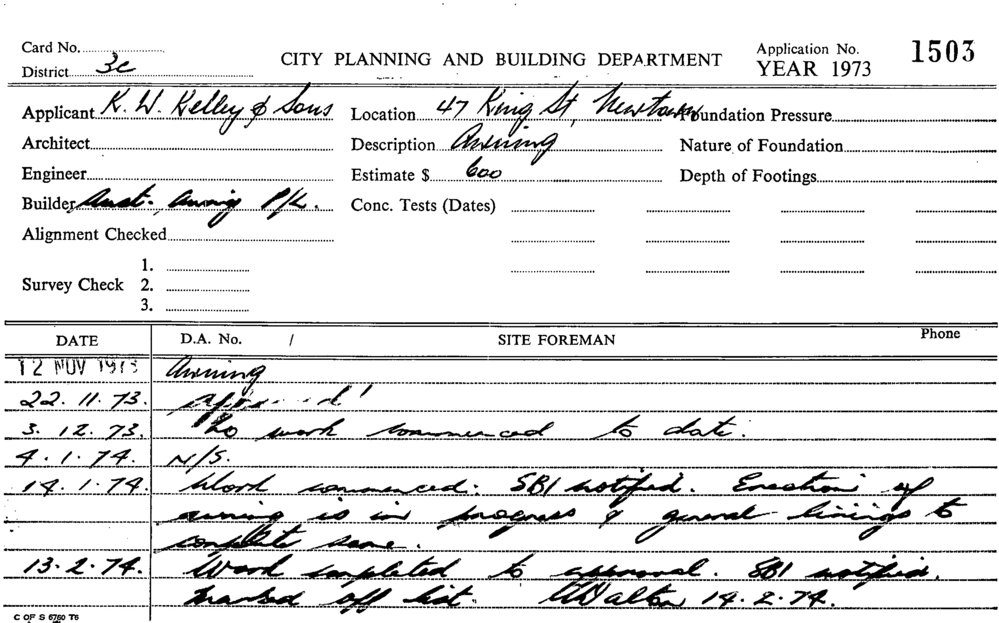 Card No.
CITY PLANNING AND BUILDING DEPARTMENT
Application No. 1503
District 3c
YEAR 1973
Applicant K. W. Kelley & Sons Location 47 King St, Newtown Foundation Pressure
Architect Description Awning Nature of Foundation
Engineer Estimate $ 600 Depth of Footings
Builder Aust. Awning P/L. Conc. Tests (Dates)
Alignment Checked
1.
Survey Check 2.
3.
DATE D.A. No. / SITE FOREMAN Phone
12 NOV 1973 Awning
22. 11. 73.
3. 12. 73. No work commenced to date.
4. 1. 74. N/S.
14. 1. 74. Work commenced: SBI notified. Erection of
awning is in progress & general linings to
complete same.
13. 2. 74. Work completed to approval. SBI notified.
Marked off list. Walton 14. 2. 74.
C OF S 6760 T6